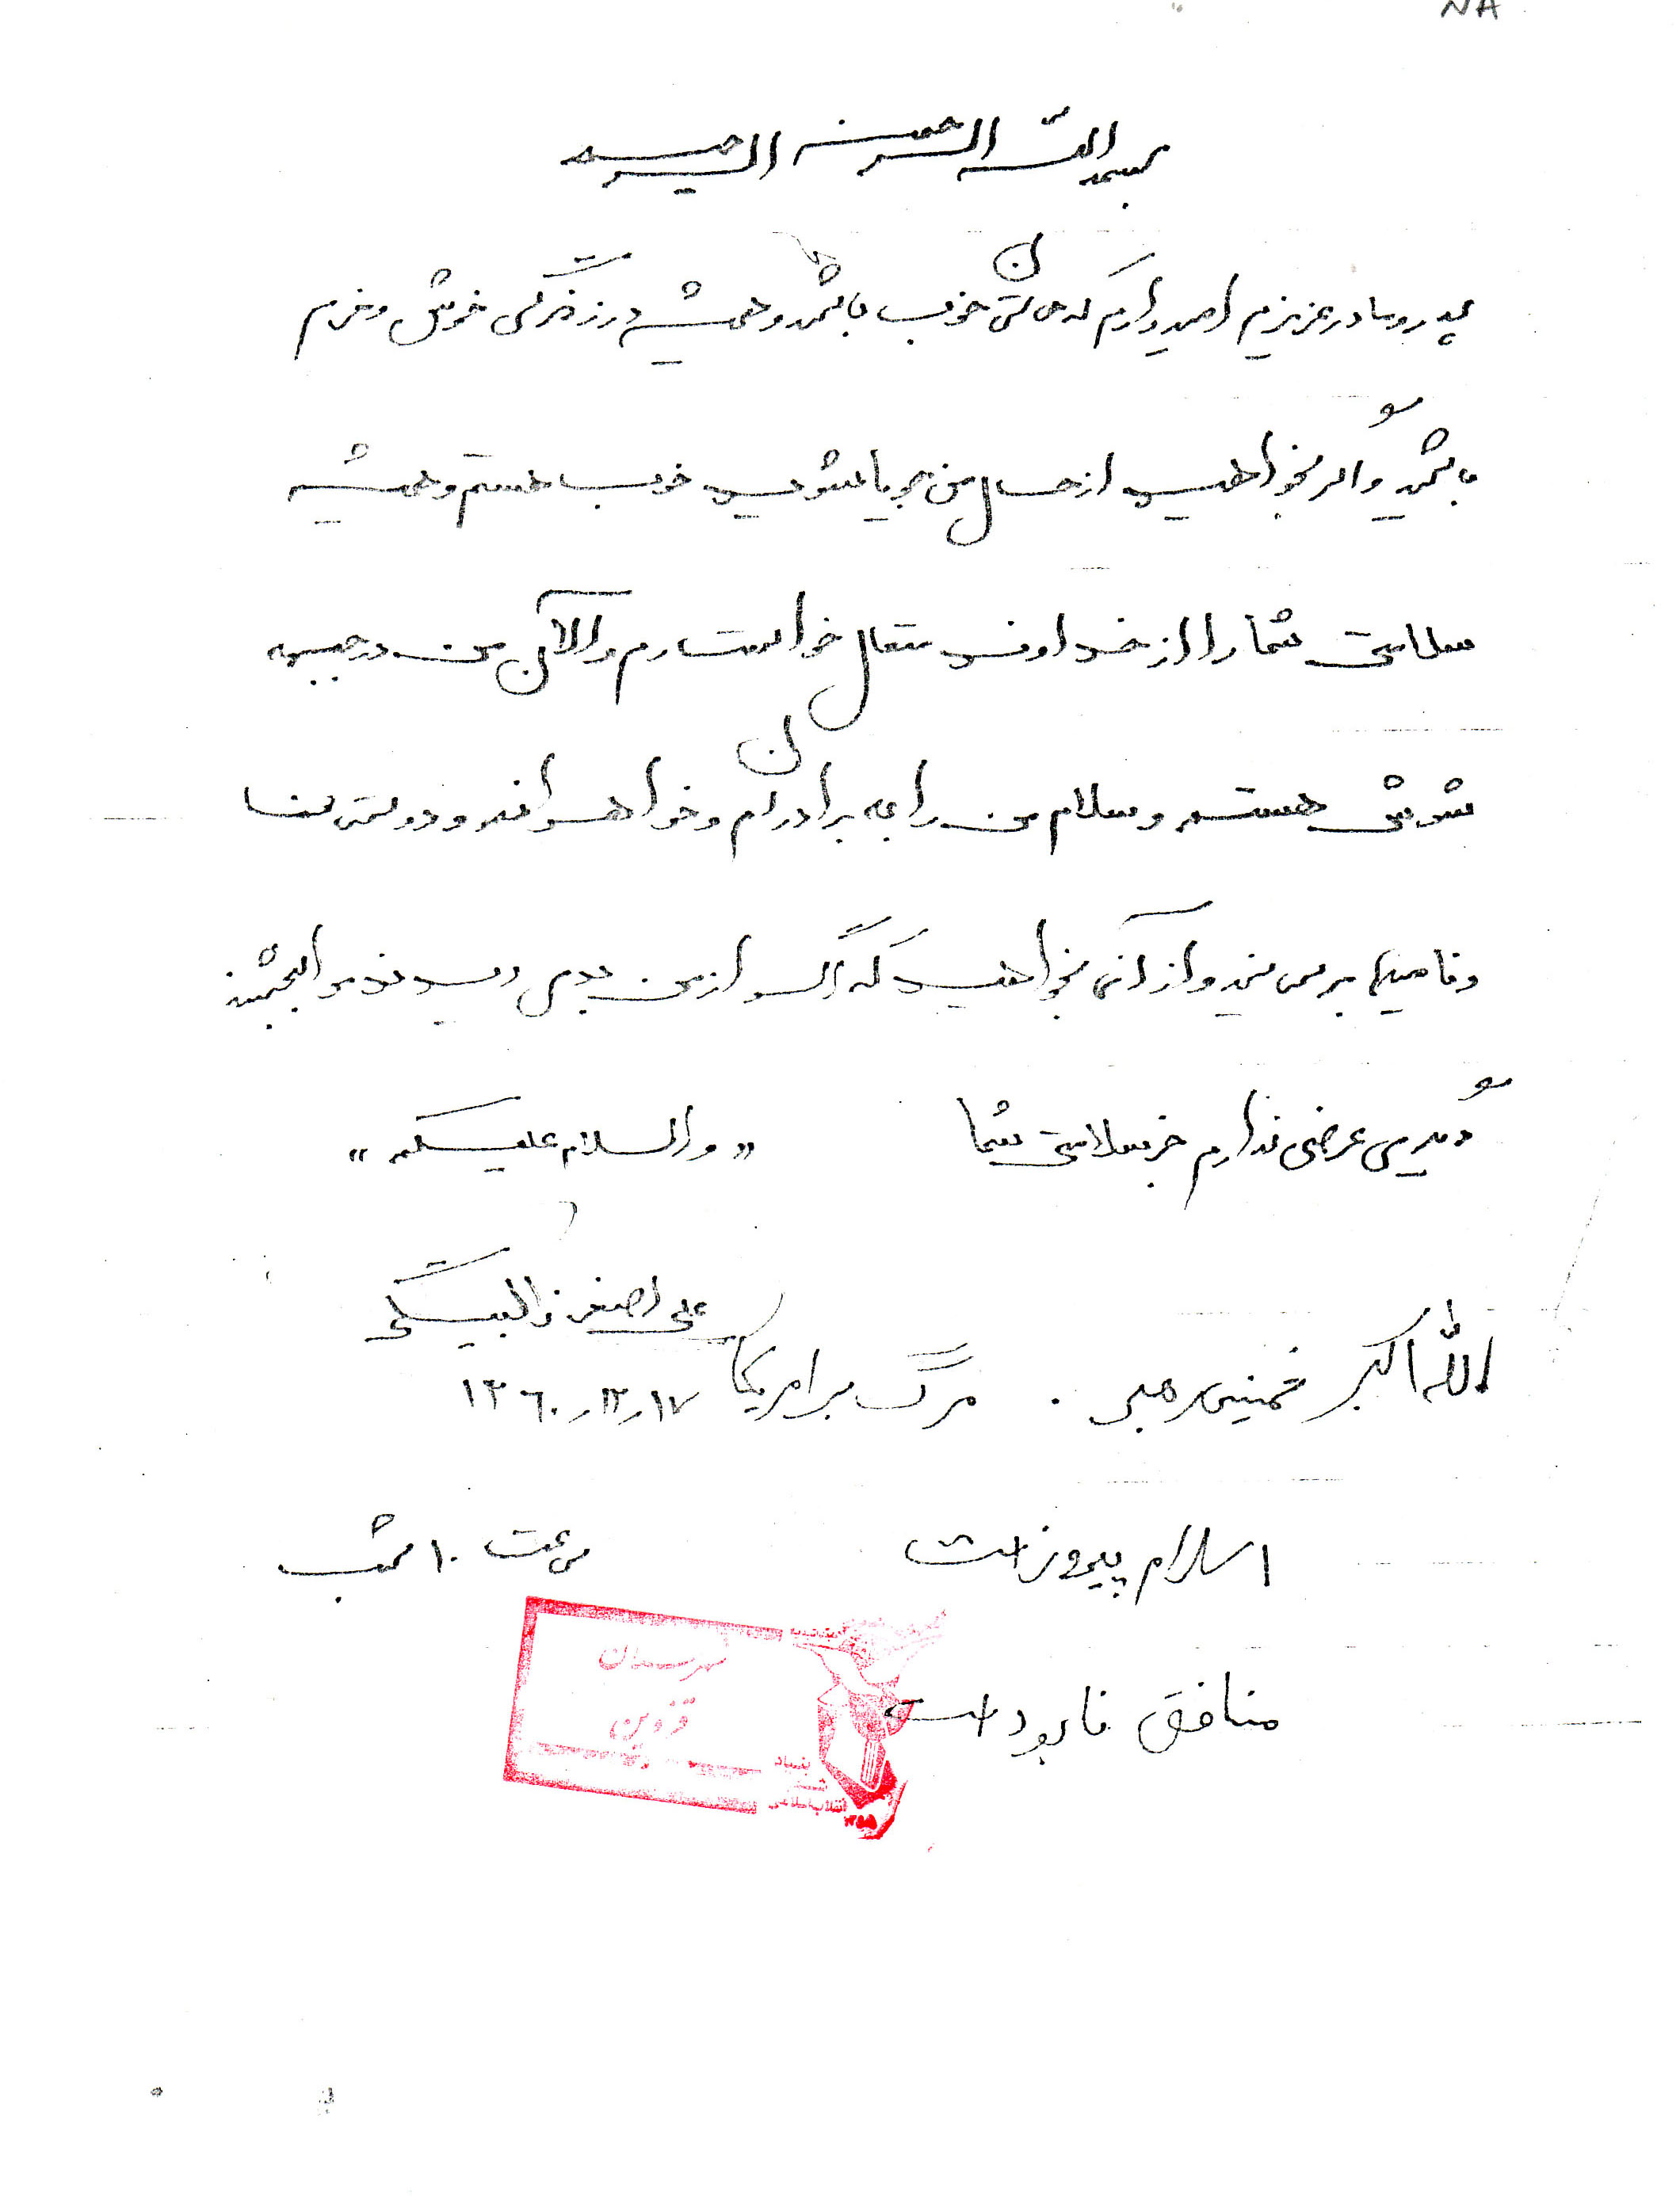 NA
بسم الله الرحمن الرحیم
پدر و مادر عزیزم امیدوارم که حالتان خوب باشد و همیشه در زندگی خوش و خرم
باشید و اگر بخواهید از حال من جویا شوید خوب هستم و همیشه
سلامتی شما را از خداوند متعال خواستارم و الآن من در جبهه
شوش هستم و سلام من را به برادرانم و خواهرانم و دوستان
و فامیلها برسانید و از آنها بخواهید که اگر از من بدی دیدند مرا ببخشند
دیگر عرضی ندارم جز سلامتی شما «والسلام علیکم»
علی اصغر زالبیگی
الله اکبر خمینی رهبر . مرگ بر امریکا ۱۳۶۰/۱۲/۱۷
اسلام پیروز است ساعت ۱۰ شب
منافق نابود است
شهرستان
قزوین
بنیاد
انقلاب اسلامی